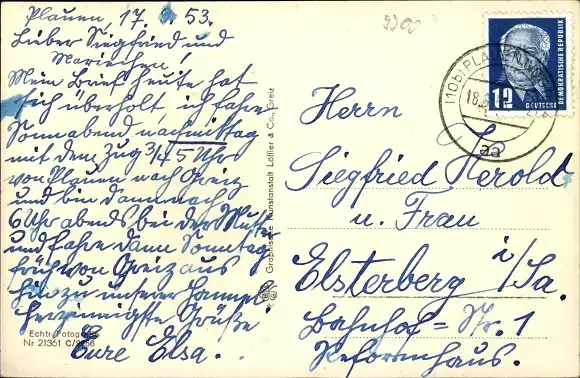 Plauen, 17. 9. 53.
Lieber Siegfried und
Mariechen!
Mein Brief heute hat
sich überholt, ich fahre
Sonnabend nachmittag
mit dem Zug 3/4 5 Uhr
von Plauen nach Greiz
und bin dann nach
6 Uhr abends bei der Mutter
und fahre dann Sonntag
früh von Greiz aus
hin zu unserer
Herzinnigste Grüße!
Eure Elsa.
Echte Fotografie
Nr. 21361 C/2756
Graphische Kunstanstalt Löffler & Co., Greiz
2300
12
DEUTSCHE
DEMOKRATISCHE REPUBLIK
(10b) PLAUEN
18.
aa
Herrn
Siegfried Herold
u. Frau
Elsterberg i/Sa.
Bahnhof=Str. 1
Reformhaus.